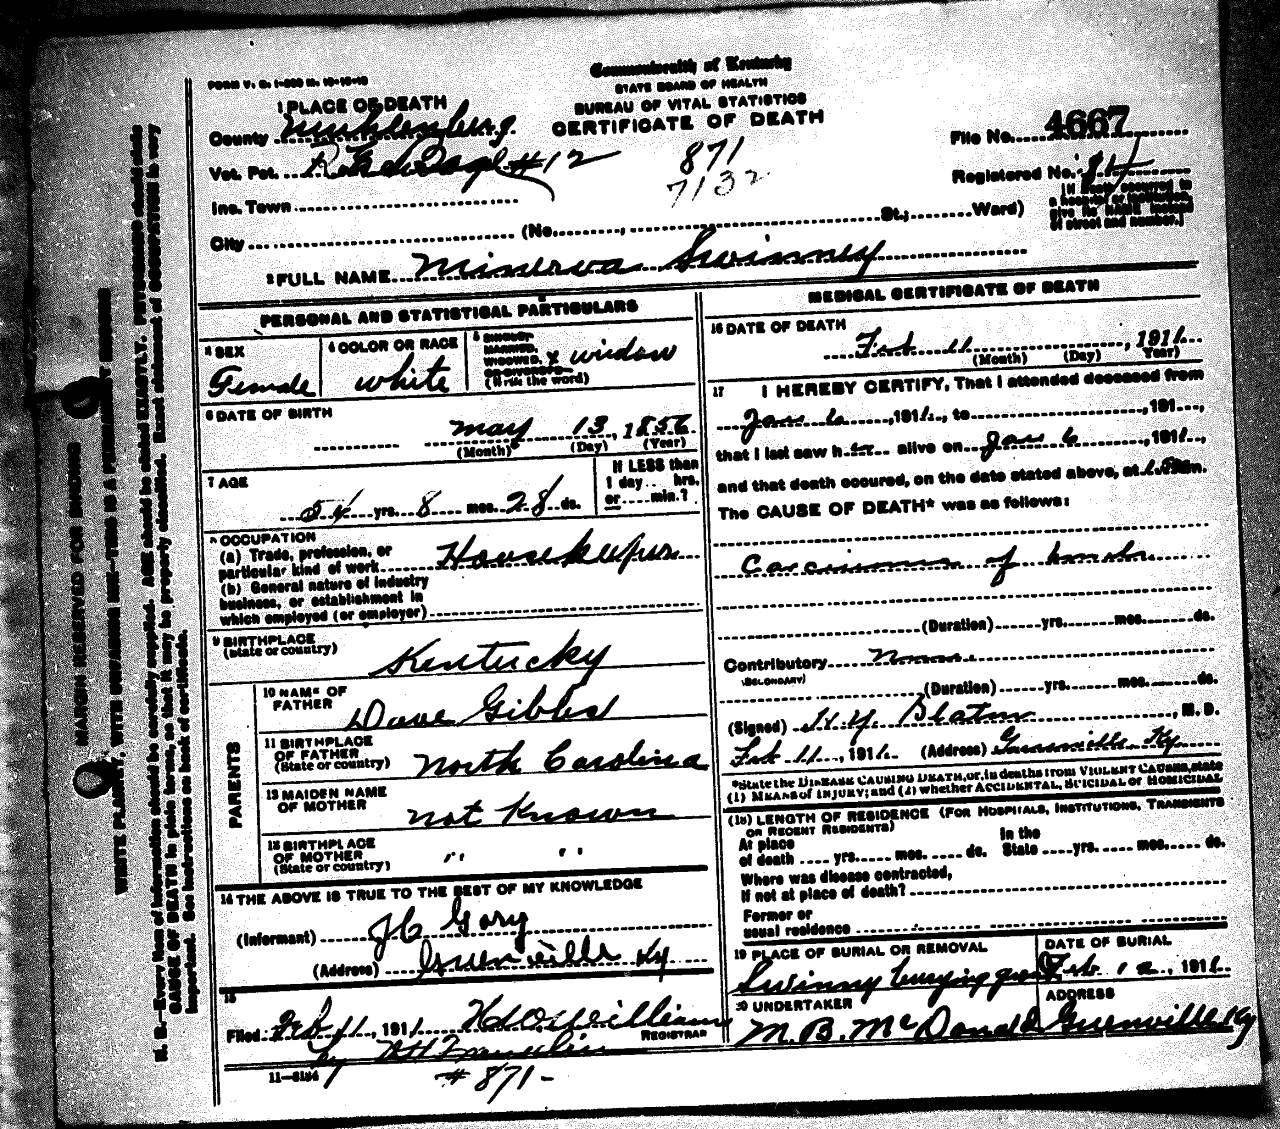 FORM V. S. 1-500 M. 10-18-10
Commonwealth of Kentucky
STATE BOARD OF HEALTH
BUREAU OF VITAL STATISTICS
CERTIFICATE OF DEATH
1 PLACE OF DEATH
County Muhlenberg
Vot. Pct. #12
871
7132
File No. 4667
Registered No. 84
Inc. Town
City (No. , St.; Ward)
[If death occurred in a hospital or institution, give its NAME instead of street and number.]
2 FULL NAME Minerva Swinney
PERSONAL AND STATISTICAL PARTICULARS
3 SEX
Female
4 COLOR OR RACE
white
5 SINGLE, MARRIED, WIDOWED, OR DIVORCED (Write the word)
x widow
6 DATE OF BIRTH
May 13, 1856
(Month) (Day) (Year)
7 AGE
54 yrs. 8 mos. 28 ds.
If LESS than 1 day hrs. or min.?
8 OCCUPATION
(a) Trade, profession, or particular kind of work Housekeeper
(b) General nature of industry business, or establishment in which employed (or employer)
9 BIRTHPLACE
(State or country)
Kentucky
PARENTS
10 NAME OF FATHER
Dave Gibbs
11 BIRTHPLACE OF FATHER
(State or country)
North Carolina
12 MAIDEN NAME OF MOTHER
not Known
13 BIRTHPLACE OF MOTHER
(State or country)
" "
14 THE ABOVE IS TRUE TO THE BEST OF MY KNOWLEDGE
(Informant) J C Gary
(Address) Greenville Ky
15
Filed Feb 11, 1911 Williams REGISTRAR
by
11-8184
# 871-
MEDICAL CERTIFICATE OF DEATH
16 DATE OF DEATH
Feb 11, 1911
(Month) (Day) Year)
17 I HEREBY CERTIFY, That I attended deceased from
Jan 6, 1911, to , 191 ,
that I last saw her alive on Jan 6, 1911,
and that death occured, on the date stated above, at m.
The CAUSE OF DEATH* was as follows:
Carcinoma of
(Duration) yrs. mos. ds.
Contributory None
(SECONDARY)
(Duration) yrs. mos. ds.
(Signed) , M. D.
Feb 11, 1911. (Address) Greenville Ky
*State the DISEASE CAUSING DEATH, or, in deaths from VIOLENT CAUSES, state
(1) MEANS of INJURY; and (2) whether ACCIDENTAL, SUICIDAL or HOMICIDAL
(18) LENGTH OF RESIDENCE (FOR HOSPITALS, INSTITUTIONS, TRANSIENTS
OR RECENT RESIDENTS)
At place of death yrs. mos. ds. In the State yrs. mos. ds.
Where was disease contracted,
if not at place of death?
Former or
usual residence
19 PLACE OF BURIAL OR REMOVAL
Swinny burying ground
DATE OF BURIAL
Feb 12, 1911
20 UNDERTAKER
M. B. McDonald
ADDRESS
Greenville Ky
MARGIN RESERVED FOR BINDING
WRITE PLAINLY, WITH UNFADING INK—THIS IS A PERMANENT RECORD
N. B.—Every item of information should be carefully supplied. AGE should be stated EXACTLY. PHYSICIANS should state
CAUSE OF DEATH in plain terms, so that it may be properly classified. Exact statement of OCCUPATION is very
important. See instructions on back of certificate.